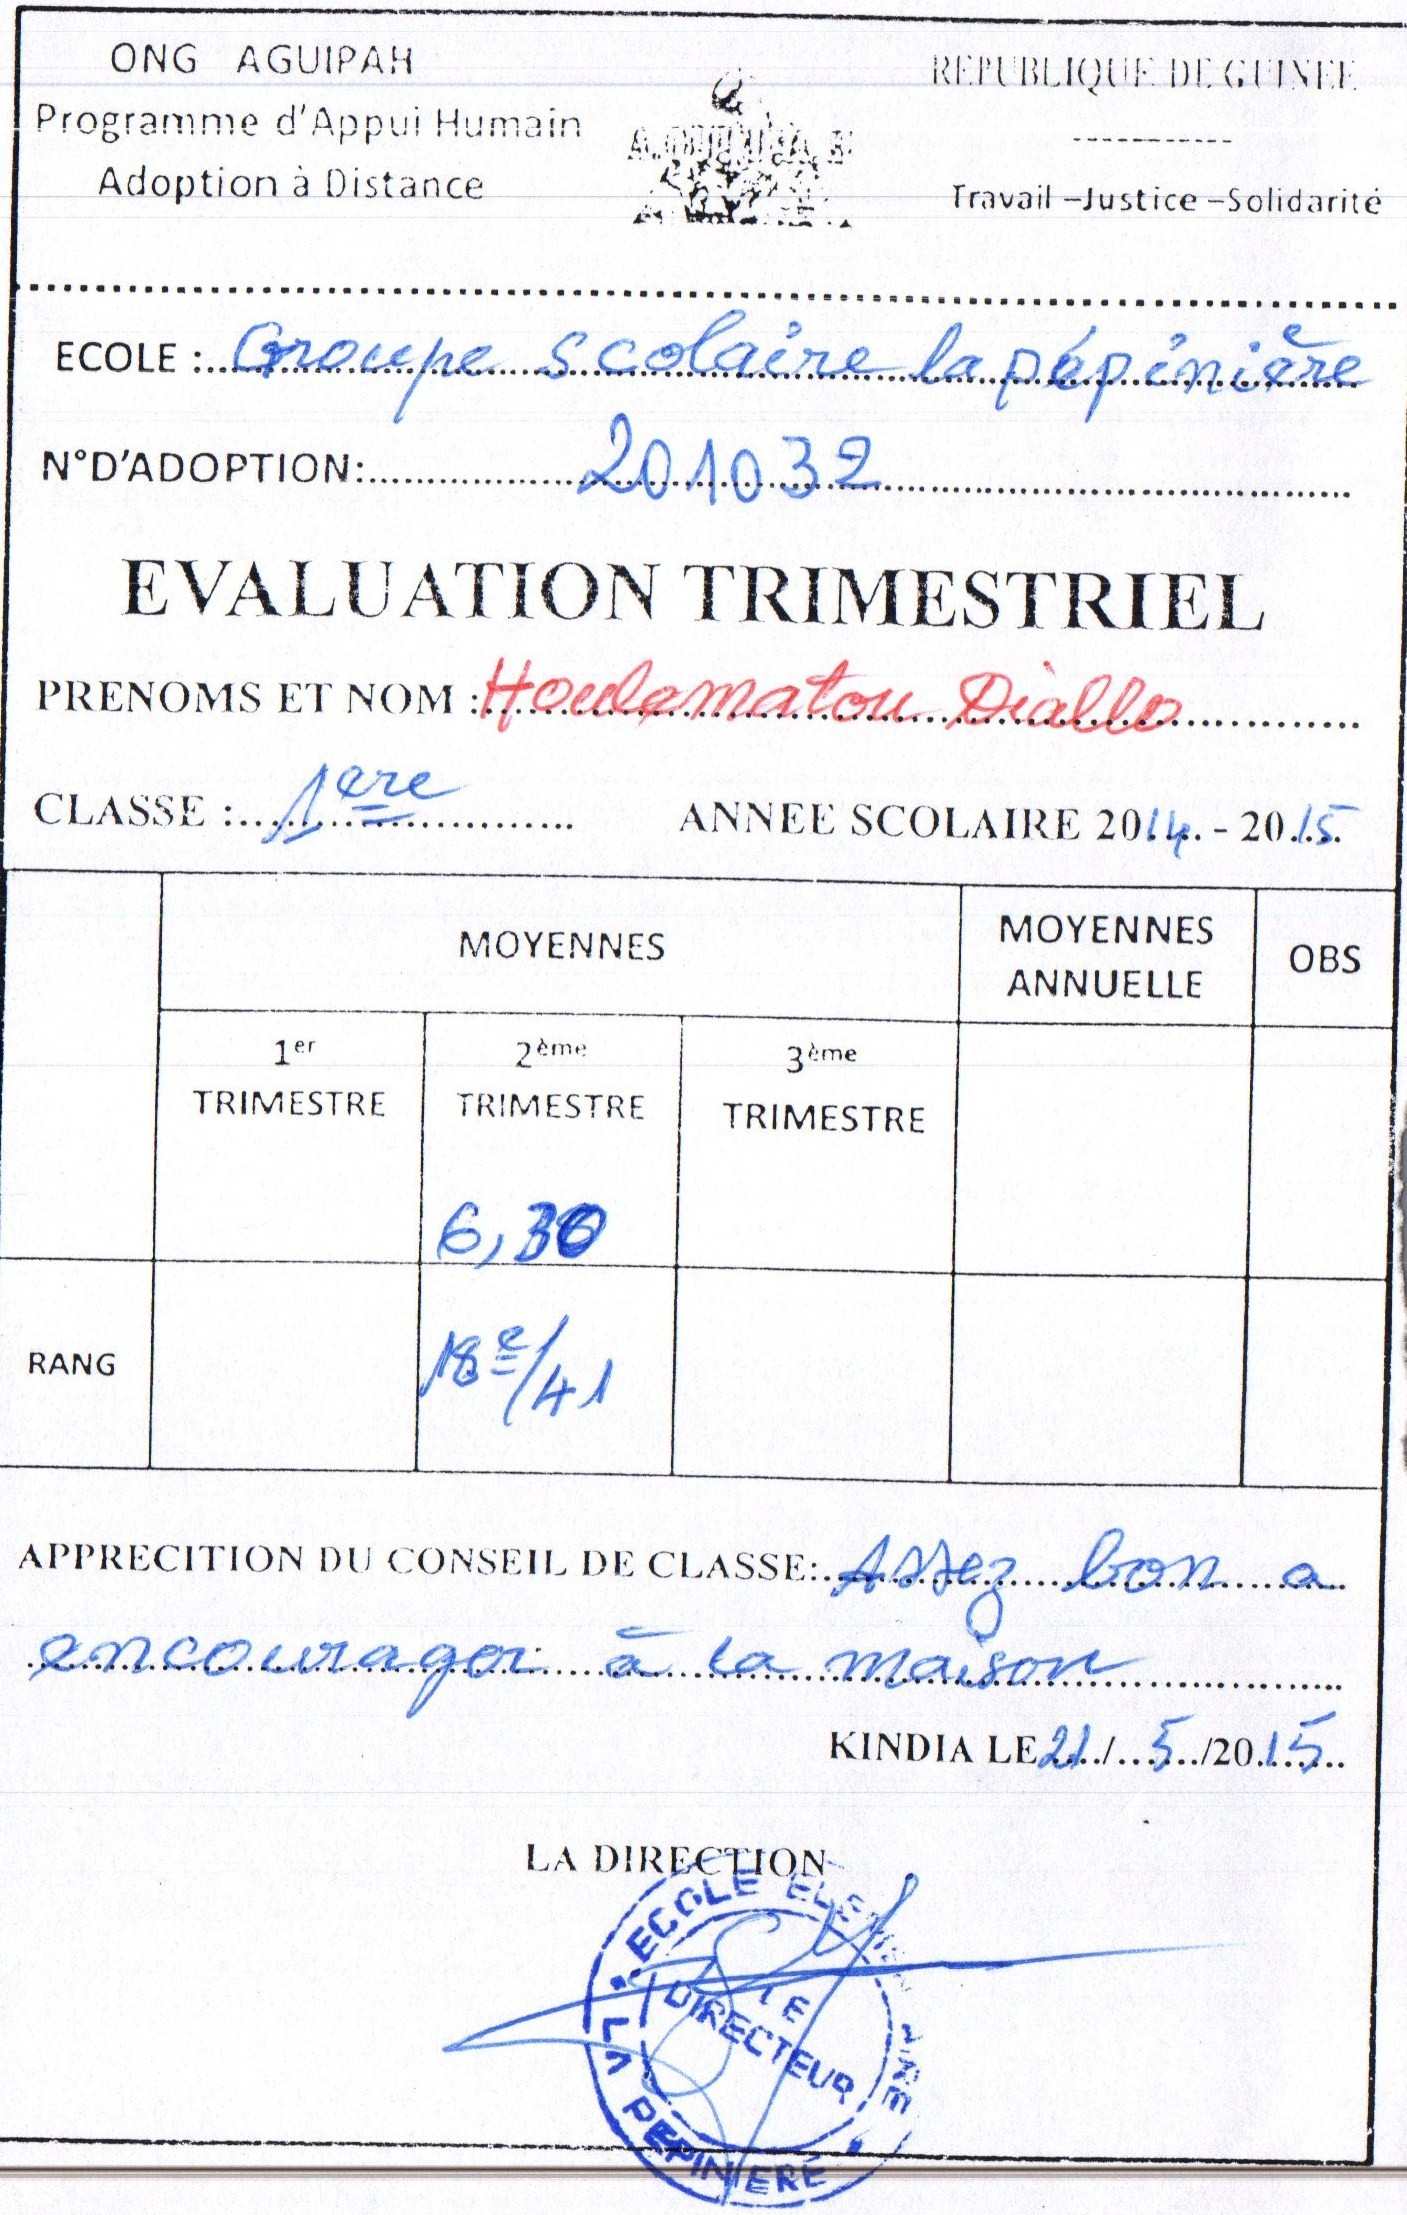 ONG AGUIPAH
Programme d'Appui Humain
Adoption à Distance
REPUBLIQUE DE GUINEE
-----------
Travail –Justice –Solidarité
ECOLE : Groupe scolaire la pépinière
N°D'ADOPTION: 201032
EVALUATION TRIMESTRIEL
PRENOMS ET NOM : Houlematou Diallo
CLASSE : 1ere
ANNEE SCOLAIRE 2014 - 2015
MOYENNES
MOYENNES ANNUELLE
OBS
1er TRIMESTRE
2ème TRIMESTRE
3ème TRIMESTRE
6,30
RANG
18e/41
APPRECITION DU CONSEIL DE CLASSE: Assez bon a
encourager à la maison
KINDIA LE 21/5/2015
LA DIRECTION
ECOLE ELEMENTAIRE
LA PEPINIERE
LE DIRECTEUR